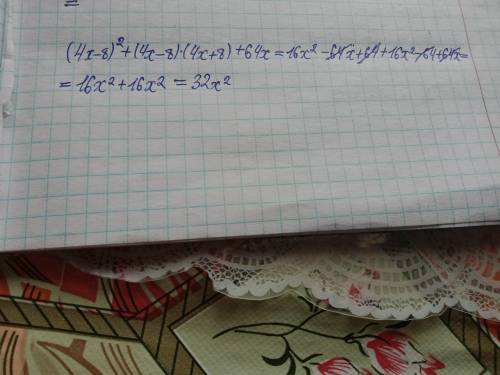 (4x-8)²+(4x-8)·(4x+8)+64x=16x²-64x+64+16x²-64+64x=
=16x²+16x²=32x²